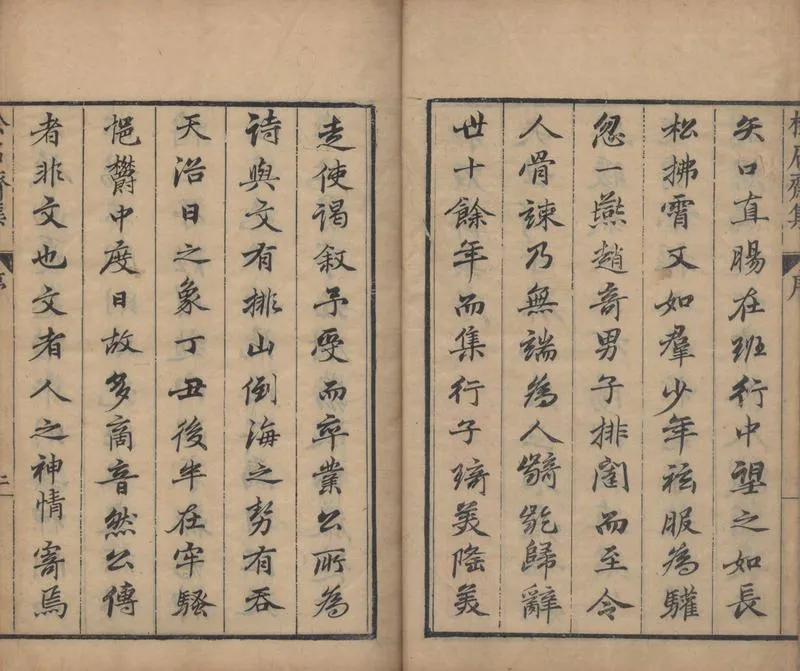 松石齋集 序
矢口直腸在班行中望之如長
松拂霄又如羣少年袨服為驩
忽一燕趙奇男子排闥而至令
人骨竦乃無端為人齮齕歸辭
世十餘年而集行子琦美隆美
走使謁敘予受而卒業公所為
詩與文有排山倒海之勢有吞
天浴日之象丁丑後半在牢騷
悒鬱中度日故多商音然公傳
者非文也文者人之神情寄焉
松石齋集 序 二